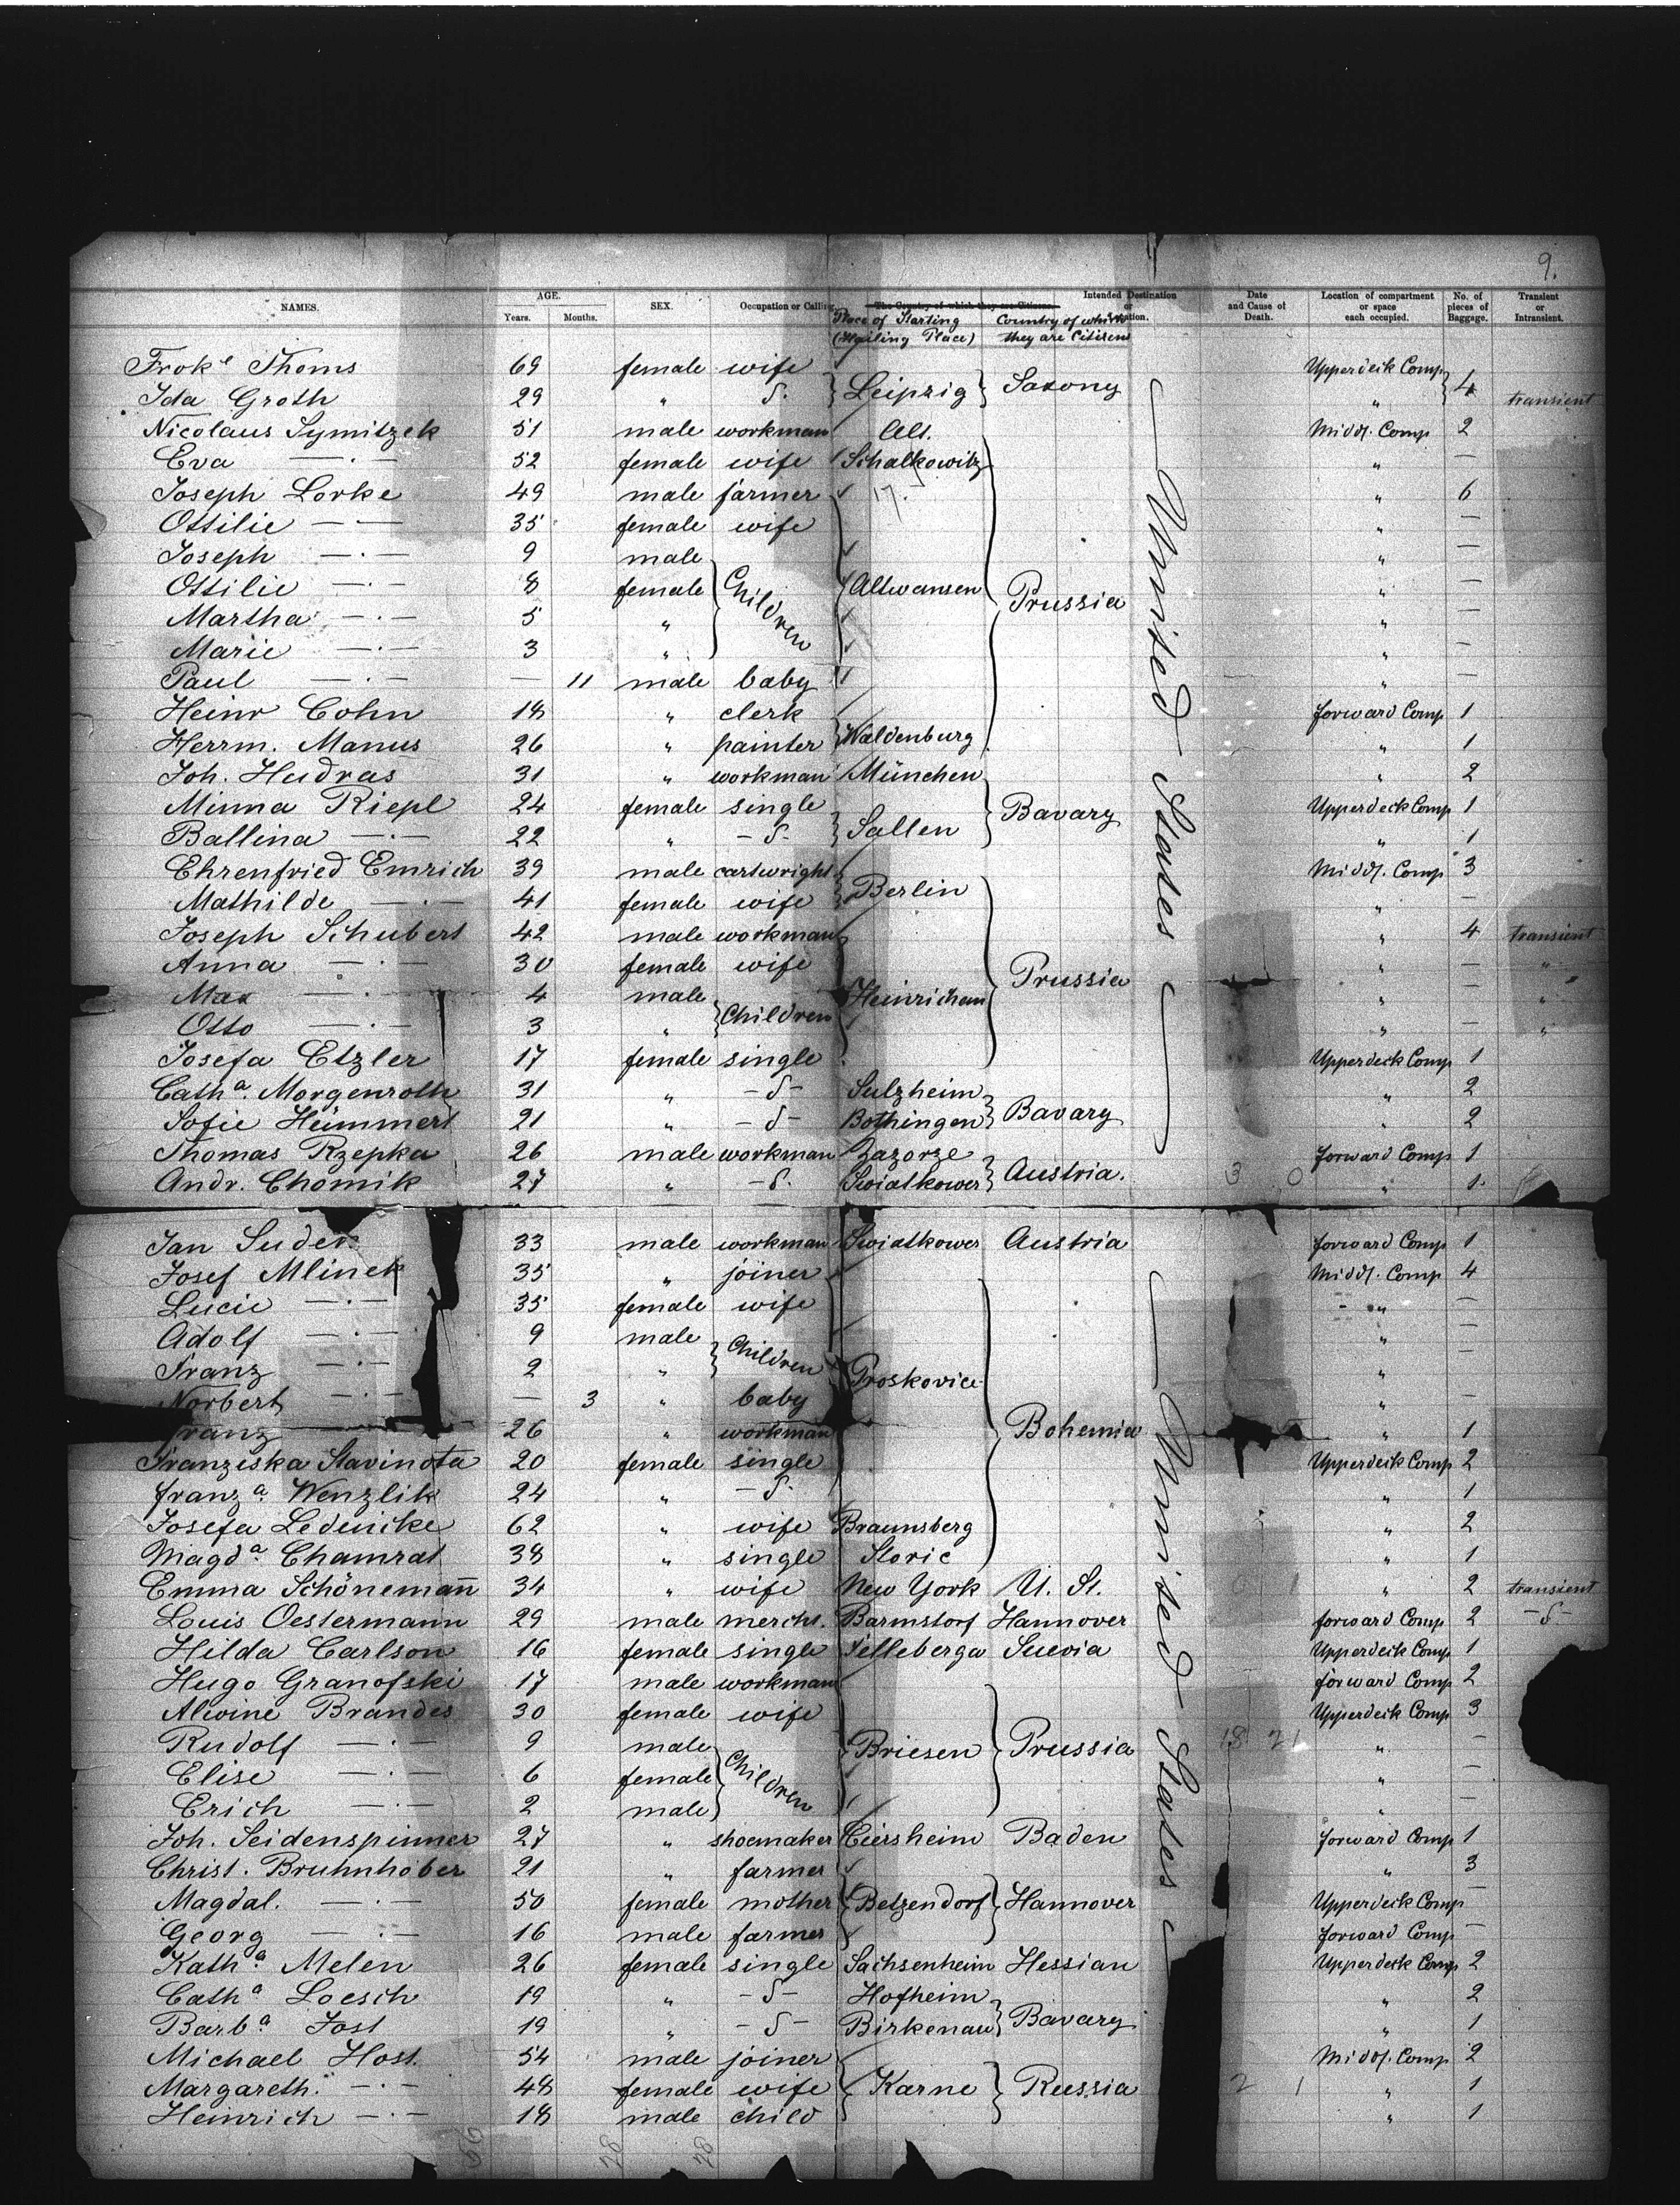 9.
NAMES. AGE. Years. Months. SEX. Occupation or Calling. The Country of which they are Citizens. Intended Destination or Location. Date and Cause of Death. Location of compartment or space each occupied. No. of pieces of Baggage. Transient or Intransient.
Place of Starting (Mailing Place) Country of which they are Citizens
Thoms 69 female wife Upperdeck Comp
Ida Groth 29 " d. Leipzig Saxony " 4 transient
Nicolaus Symitzek 51 male workman Alt. Middl. Comp 2
Eva —·— 52 female wife Schalkowitz " —
Joseph Lorke 49 male farmer 17. " 6
Ottilie —·— 35 female wife " —
Joseph —·— 9 male " —
Ottilie —·— 8 female Children Altwansen Prussia " —
Martha —·— 5 " " —
Marie —·— 3 " " —
Paul —·— — 11 male baby " —
Heinr Cohn 18 " clerk forward Comp 1
Herrm. Manus 26 " painter Waldenburg " 1
Joh. Hudras 31 " workman München " 2
Minna Riepl 24 female single Bavary Upperdeck Comp 1
Ballina —·— 22 " –d– Sallen " 1
Ehrenfried Emrich 39 male cartwright Middl. Comp 3
Mathilde —·— 41 female wife Berlin " —
Joseph Schubert 42 male workman " 4 transient
Anna —·— 30 female wife Prussia " — "
Max —·— 4 male Heinrichau " — "
Otto —·— 3 " Children " — "
Josefa Etzler 17 female single Upperdeck Comp 1
Catha. Morgenroth 31 " –d– Sulzheim " 2
Sofie Hümmert 21 " –d– Bothingen Bavary " 2
Thomas Rzepka 26 male workman Zazorze forward Comp 1
Andr. Chomik 27 " –d. Swiatkower Austria. 3 0 " 1
United States
Jan Suder 33 male workman Swiatkower Austria forward Comp 1
Josef Mlinek 35 " joiner Middl. Comp 4
Lucie —·— 35 female wife " —
Adolf —·— 9 male " —
Franz —·— 2 " Children Proskovice " —
Norbert —·— — 3 " baby " —
Franz 26 " workman Bohemia " 1
Franziska Slavinota 20 female single Upperdeck Comp 2
Franza. Wenzlik 24 " –d. " 1
Josefa Ledwicke 62 " wife Braunsberg " 2
Magda. Chamrat 38 " single Storic " 1
Emma Schönemañ 34 " wife New York U. St. " 2 transient
Louis Oestermann 29 male mercht. Barmstorf Hannover forward Comp 2 –d–
Hilda Carlson 16 female single Felleberga Suevia Upperdeck Comp 1
Hugo Granofski 17 male workman forward Comp 2
Alwine Brandes 30 female wife Upperdeck Comp 3
Rudolf —·— 9 male Briesen Prussia 18 21 " —
Elise —·— 6 female Children " —
Erich —·— 2 male " —
Joh. Seidenspinner 27 " shoemaker Eiersheim Baden forward Comp 1
Christ. Bruhnhöber 21 " farmer " 3
Magdal. —·— 50 female mother Betzendorf Hannover Upperdeck Comp —
Georg —·— 16 male farmer forward Comp —
Katha. Melen 26 female single Sachsenheim Hessian Upperdeck Comp 2
Catha Loesch 19 " –d– Hofheim " 2
Barba. Jost 19 " –d– Birkenau Bavary " 1
Michael Host. 54 male joiner Middl. Comp 2
Margareth. —·— 48 female wife Karne Russia 2 1 " 1
Heinrich —·— 18 male child " 1
United States
56 28 28